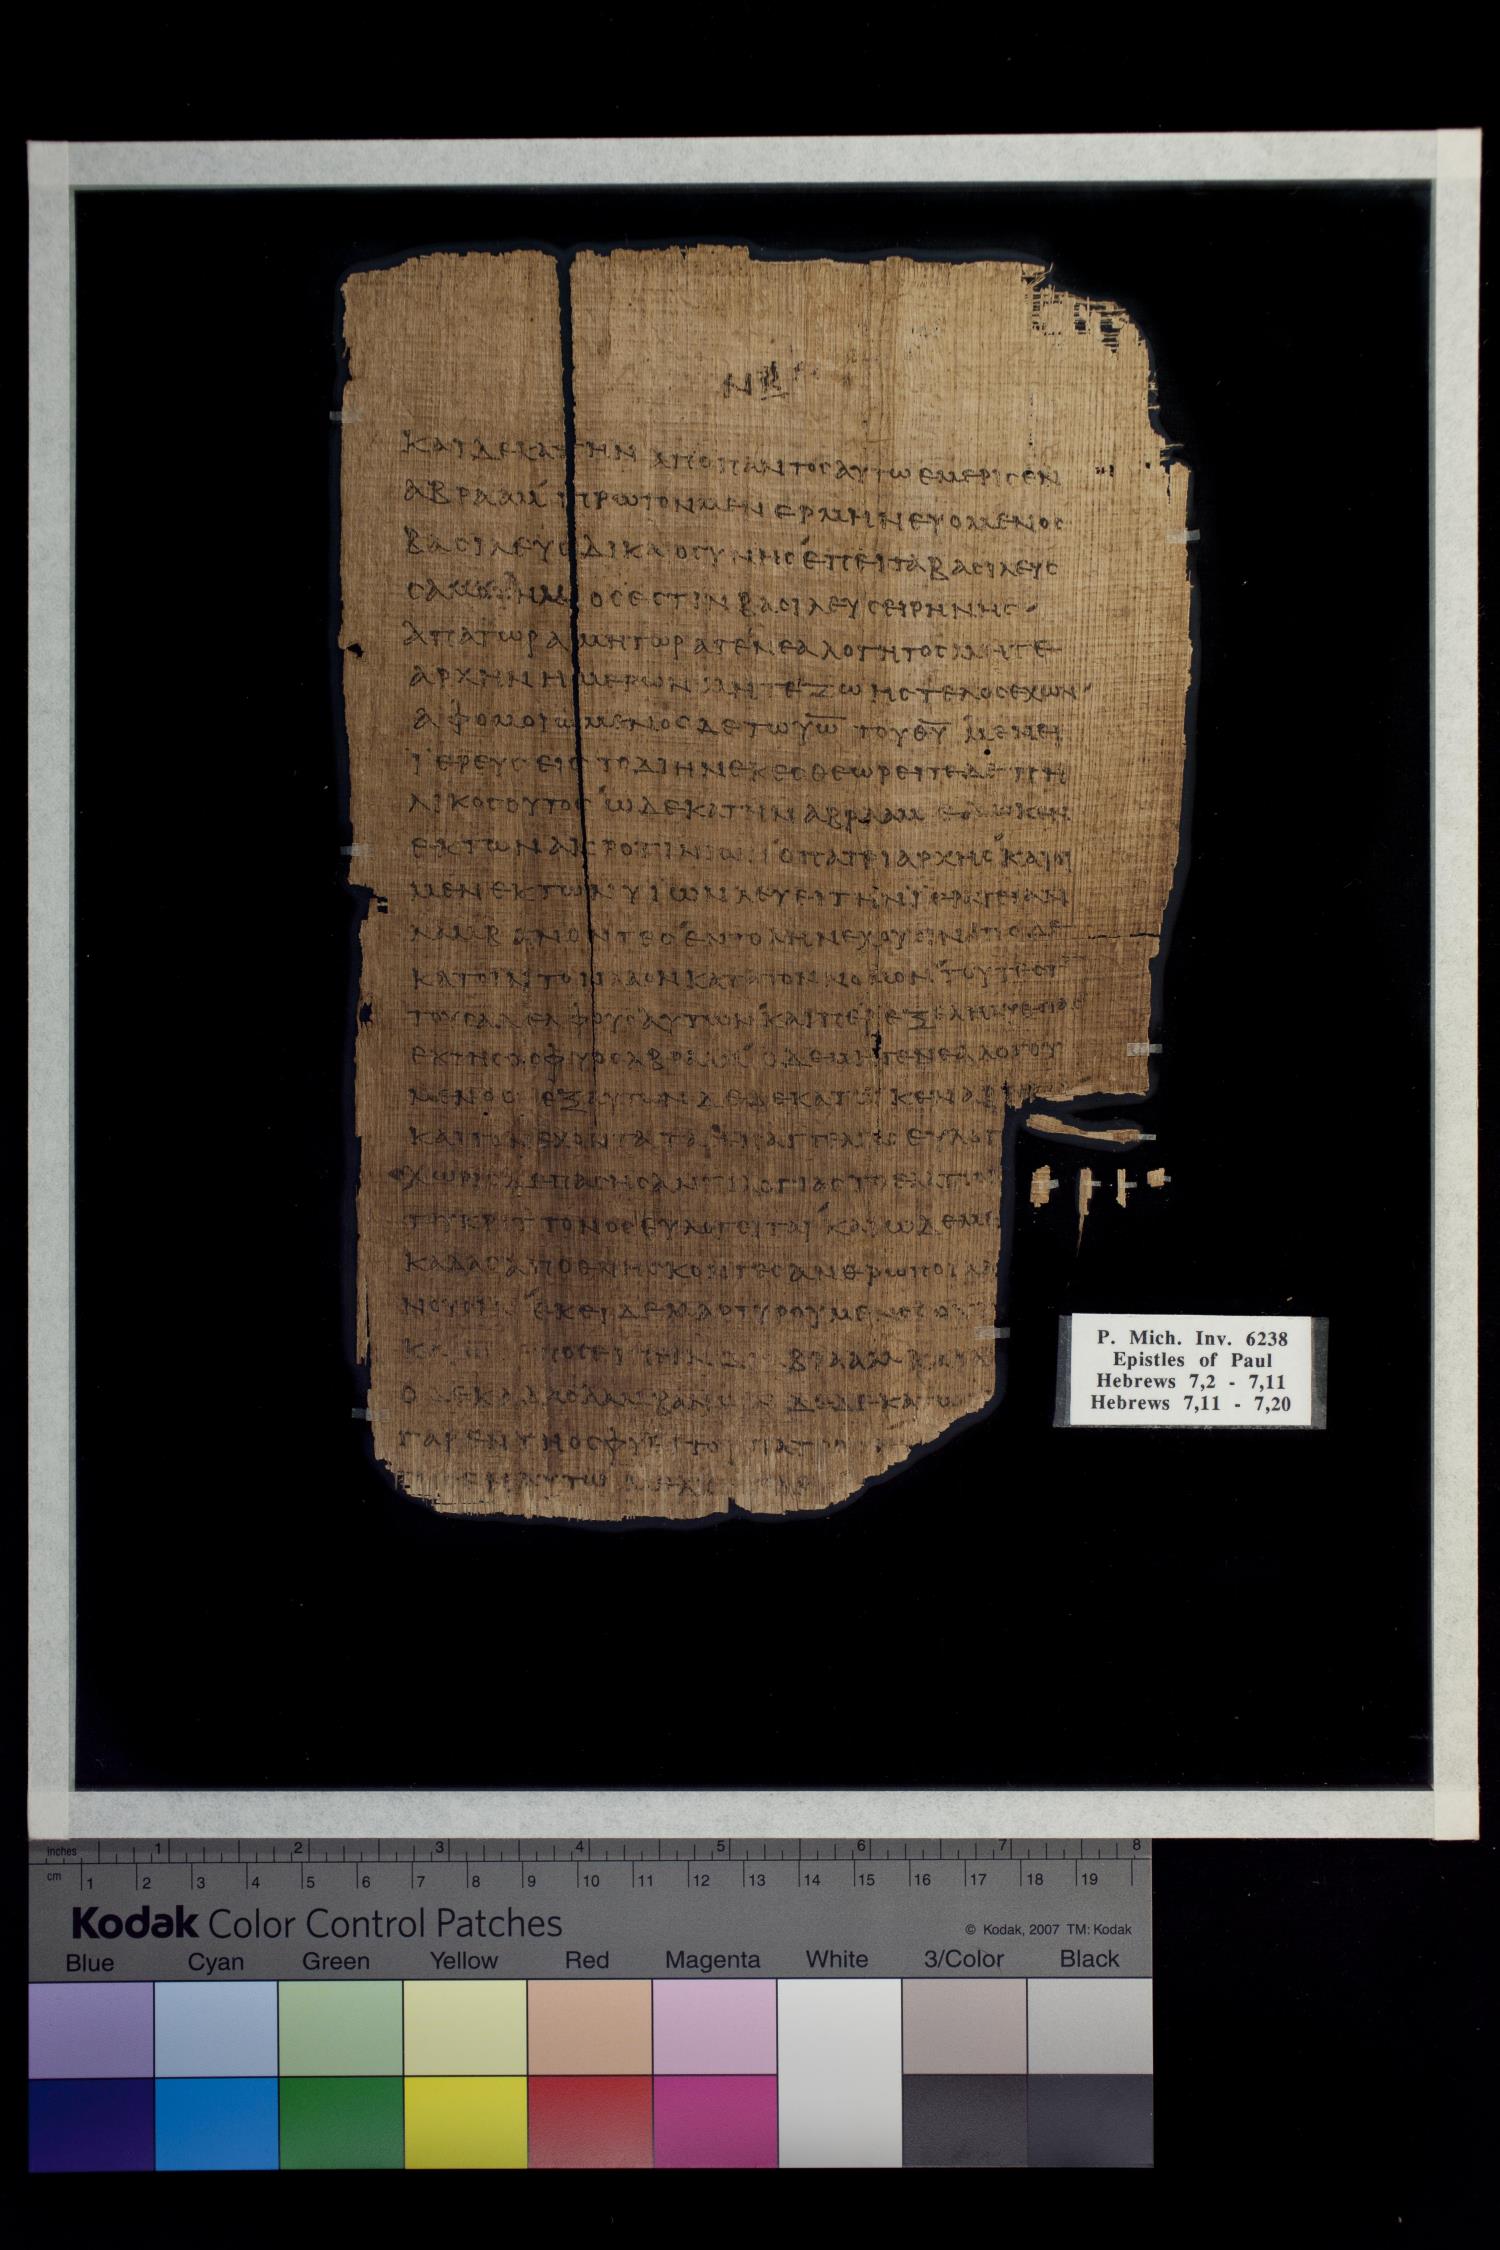 ΝΒ
ΚΑΙ ΔΕΚΑΤΗΝ ΑΠΟ ΠΑΝΤΟΣ ΑΥΤΩ ΕΜΕΡΙΣΕΝ
ΑΒΡΑΑΜ ΠΡΩΤΟΝ ΜΕΝ ΕΡΜΗΝΕΥΟΜΕΝΟΣ
ΒΑΣΙΛΕΥΣ ΔΙΚΑΟΣΥΝΗΣ ΕΠΕΙΤΑ ΒΑΣΙΛΕΥΣ
Ο ΕΣΤΙΝ ΒΑΣΙΛΕΥΣ ΕΙΡΗΝΗΣ
ΑΠΑΤΩΡ ΑΜΗΤΩΡ ΑΓΕΝΕΑΛΟΓΗΤΟΣ ΜΗΤΕ
ΑΡΧΗΝ ΗΜΕΡΩΝ ΜΗΤΕ ΖΩΗΣ ΤΕΛΟΣ ΕΧΩΝ
ΑΦΟΜΟΙΩΜΕΝΟΣ ΔΕ ΤΩ ΥΩ ΤΟΥ ΘΥ ΜΕΝΕΙ
ΙΕΡΕΥΣ ΕΙΣ ΤΟ ΔΙΗΝΕΚΕΣ ΘΕΩΡΕΙΤΕ ΔΕ ΠΗ
ΛΙΚΟΣ ΟΥΤΟΣ Ω ΔΕΚΑΤΗΝ ΑΒΡΑΑΜ ΕΔΩΚΕΝ
ΕΚ ΤΩΝ Ο ΠΑΤΡΙΑΡΧΗΣ ΚΑΙ ΟΙ
ΜΕΝ ΕΚ ΤΩΝ ΥΙΩΝ ΛΕΥΕΙ ΤΗΝ ΙΕΡΑΤΕΙΑΝ
ΛΑΜΒΑΝΟΝΤΕΣ ΕΝΤΟΛΗΝ ΕΧΟΥΣΙΝ ΑΠΟΔΕ
ΚΑΤΟΙΝ ΤΟΝ ΛΑΟΝ ΚΑΤΑ ΤΟΝ ΝΟΜΟΝ ΤΟΥΤΕΣΤ
ΤΟΥΣ ΑΔΕΛΦΟΥΣ ΑΥΤΩΝ ΚΑΙΠΕΡ
ΕΚ ΤΗΣ ΟΣΦΥΟΣ ΑΒΡΑΑΜ Ο ΔΕ ΜΗ ΓΕΝΕΑΛΟΓΟΥ
ΜΕΝΟΣ ΕΞ ΑΥΤΩΝ ΔΕΔΕΚΑΤΩΚΕΝ
ΚΑΙ ΤΟΝ ΕΧΟΝΤΑ ΤΑΣ ΕΥΛΟΓ
ΧΩΡΙΣ ΔΕ ΠΑΣΗΣ ΑΝΤΙΛΟΓΙΑΣ ΤΟ ΕΛΑΤΤΟΝ
ΤΟΥ ΚΡΙΤΤΟΝΟΣ ΕΥΛΟΓΕΙΤΑΙ ΚΑΙ ΩΔΕ ΜΕ
ΑΠΟΘΝΗΣΚΟΝΤΕΣ ΑΝΘΡΩΠΟΙ
ΕΚΕΙ ΔΕ ΜΑΡΤΥΡΟΥΜΕΝΟΣ
ΑΒΡΑΑΜ
Ο ΔΕΚΑΤΑΣ ΛΑΜΒΑΝΩΝ ΔΕΔΕΚΑΤΩ
ΓΑΡ ΕΝ ΤΗ ΟΣΦΥΕΙ ΤΟΥ ΠΑΤ
ΑΥΤΩ
P. Mich. Inv. 6238
Epistles of Paul
Hebrews 7,2 - 7,11
Hebrews 7,11 - 7,20
inches 1 2 3 4 5 6 7 8
cm 1 2 3 4 5 6 7 8 9 10 11 12 13 14 15 16 17 18 19
Kodak Color Control Patches © Kodak, 2007 TM: Kodak
Blue Cyan Green Yellow Red Magenta White 3/Color Black